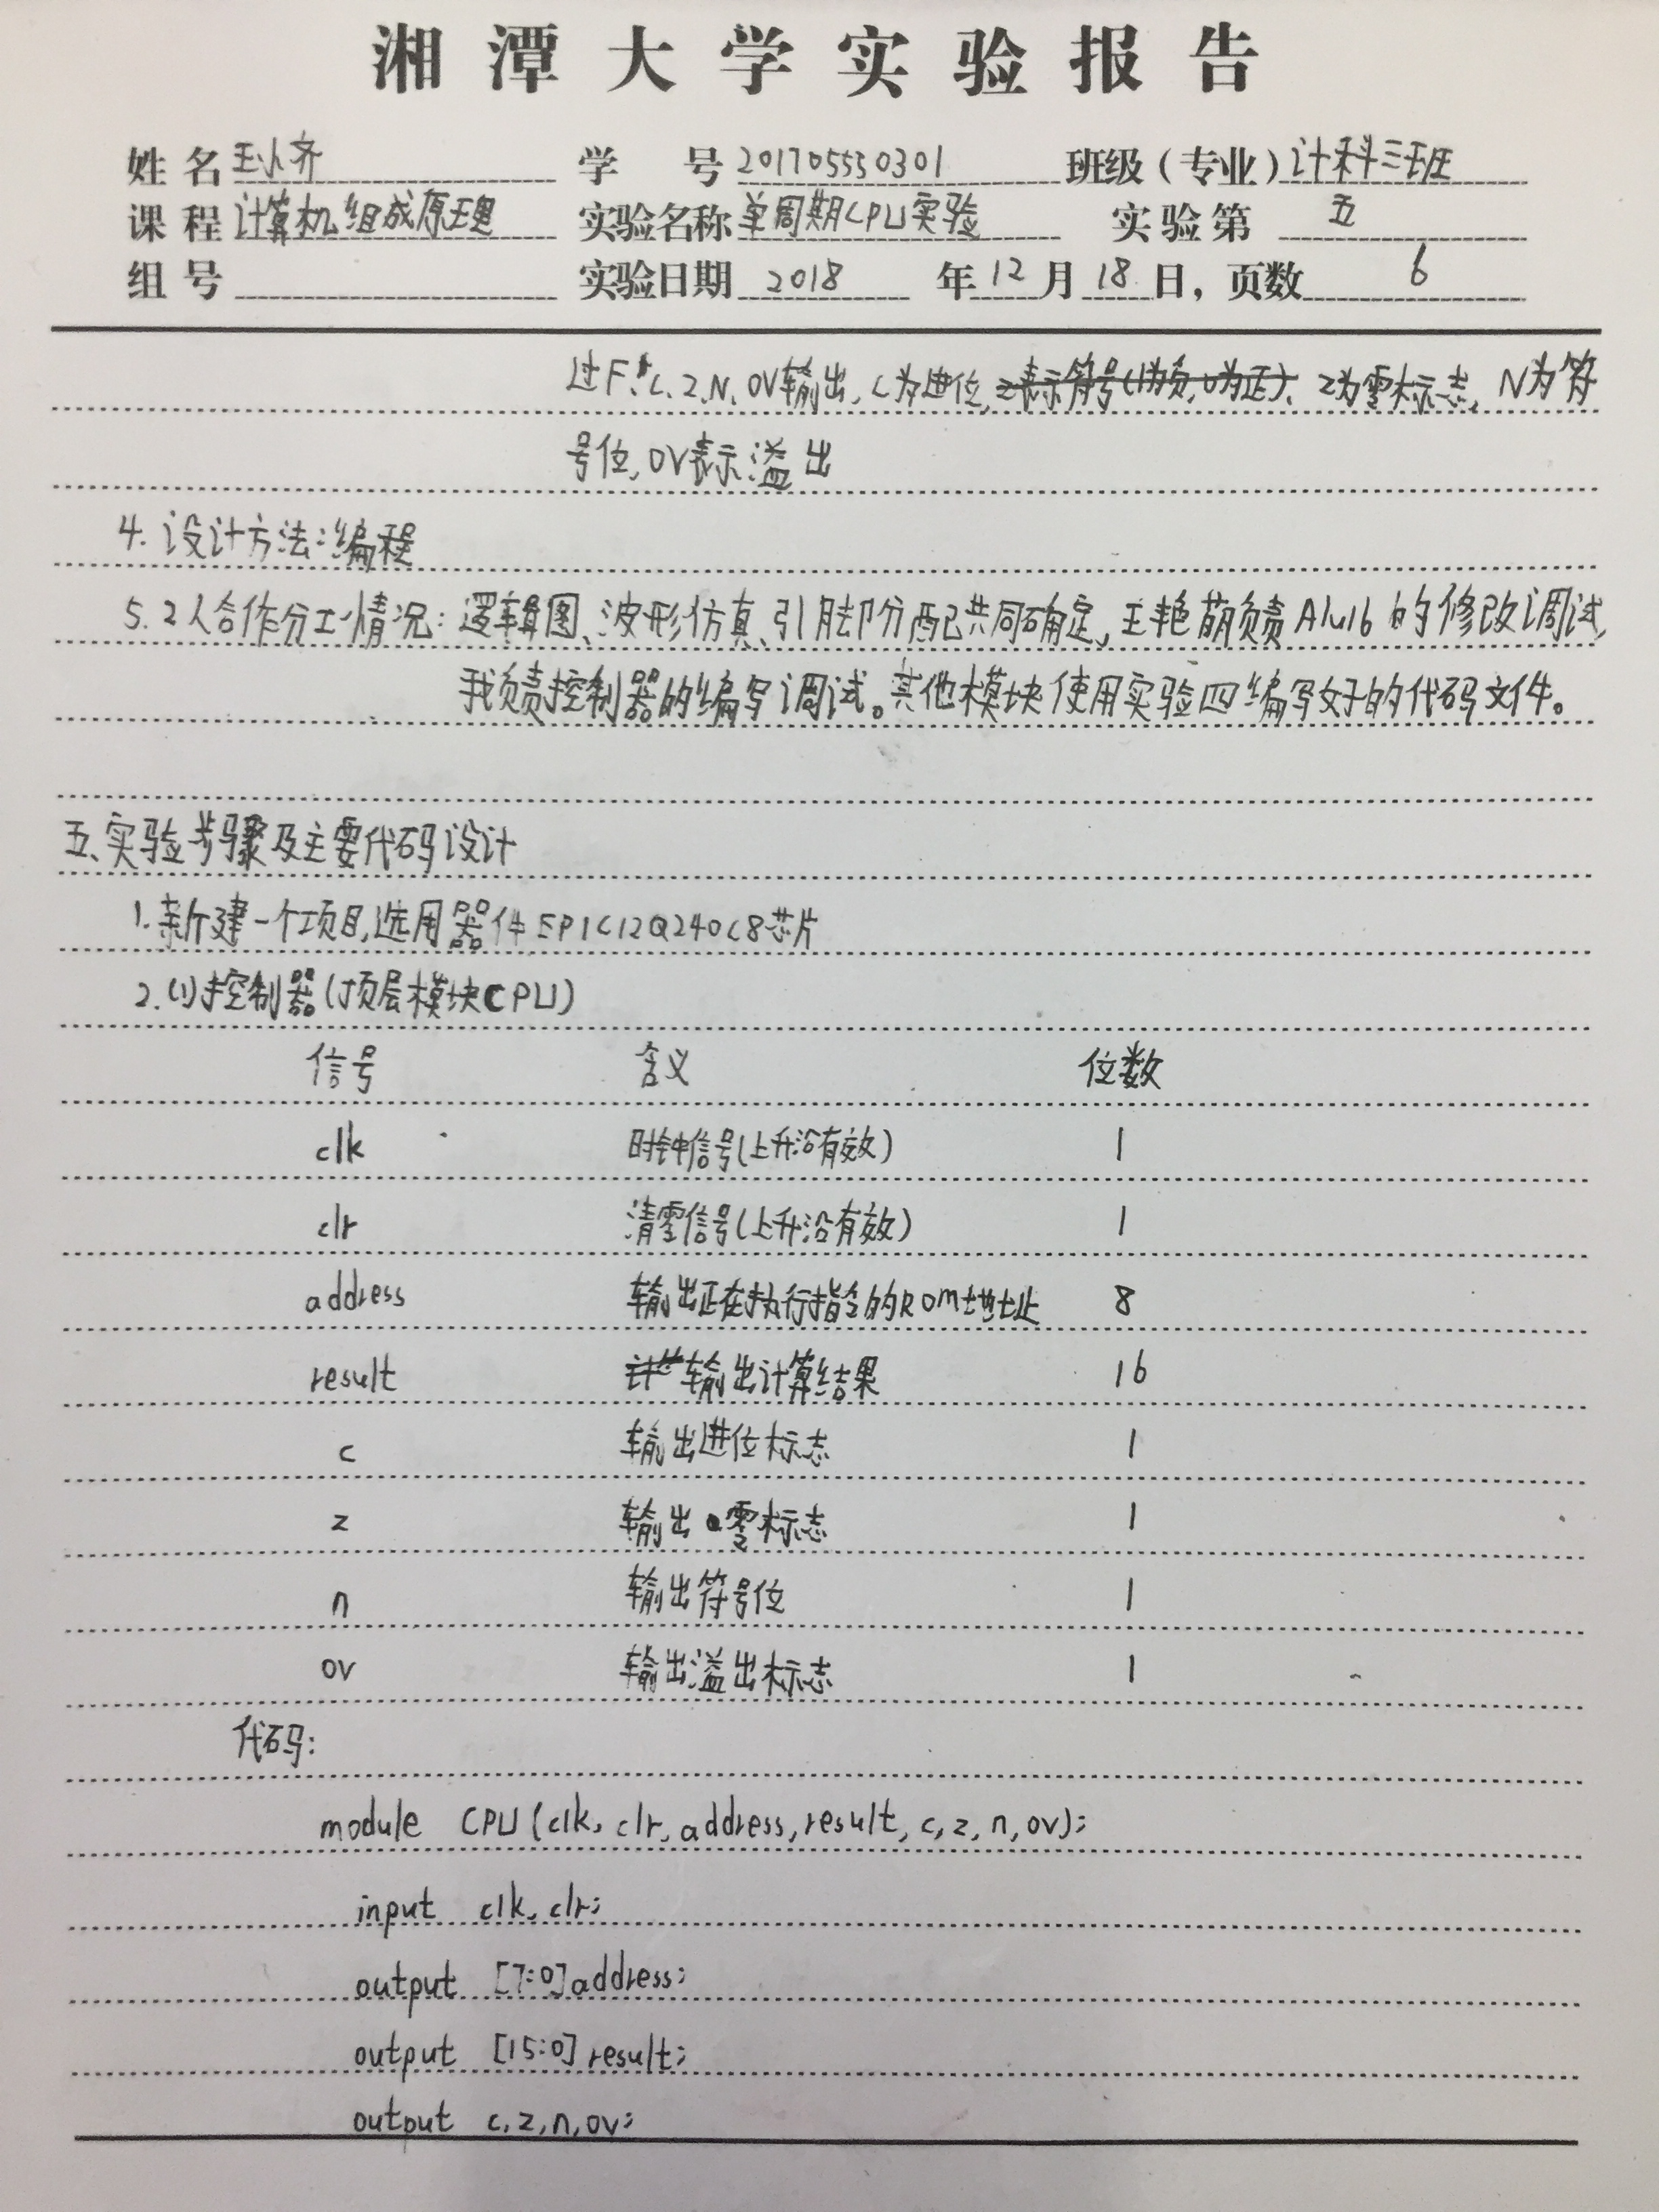 湘潭大学实验报告
姓名 王小齐 学号 201705550301 班级（专业）计科三班
课程 计算机组成原理 实验名称 单周期CPU实验 实验第 五
组号 实验日期 2018 年 12 月 18 日，页数 6
过F、C、Z、N、OV输出，C为进位，Z表示符号(1为负,0为正)、Z为零标志，N为符
号位，OV表示溢出
4. 设计方法：编程
5. 2人合作分工情况：逻辑图、波形仿真、引脚分配已共同确定，王艳萌负责Alu16的修改调试，
我负责控制器的编写调试。其他模块使用实验四编写好的代码文件。
五、实验步骤及主要代码设计
1. 新建一个项目，选用器件EP1C12Q240C8芯片
2. (1)控制器(顶层模块CPU)
信号 含义 位数
clk 时钟信号(上升沿有效) 1
clr 清零信号(上升沿有效) 1
address 输出正在执行指令的ROM地址 8
result 输出计算结果 16
c 输出进位标志 1
z 输出零标志 1
n 输出符号位 1
ov 输出溢出标志 1
代码：
module CPU(clk, clr, address, result, c, z, n, ov);
input clk, clr;
output [7:0] address;
output [15:0] result;
output c, z, n, ov;